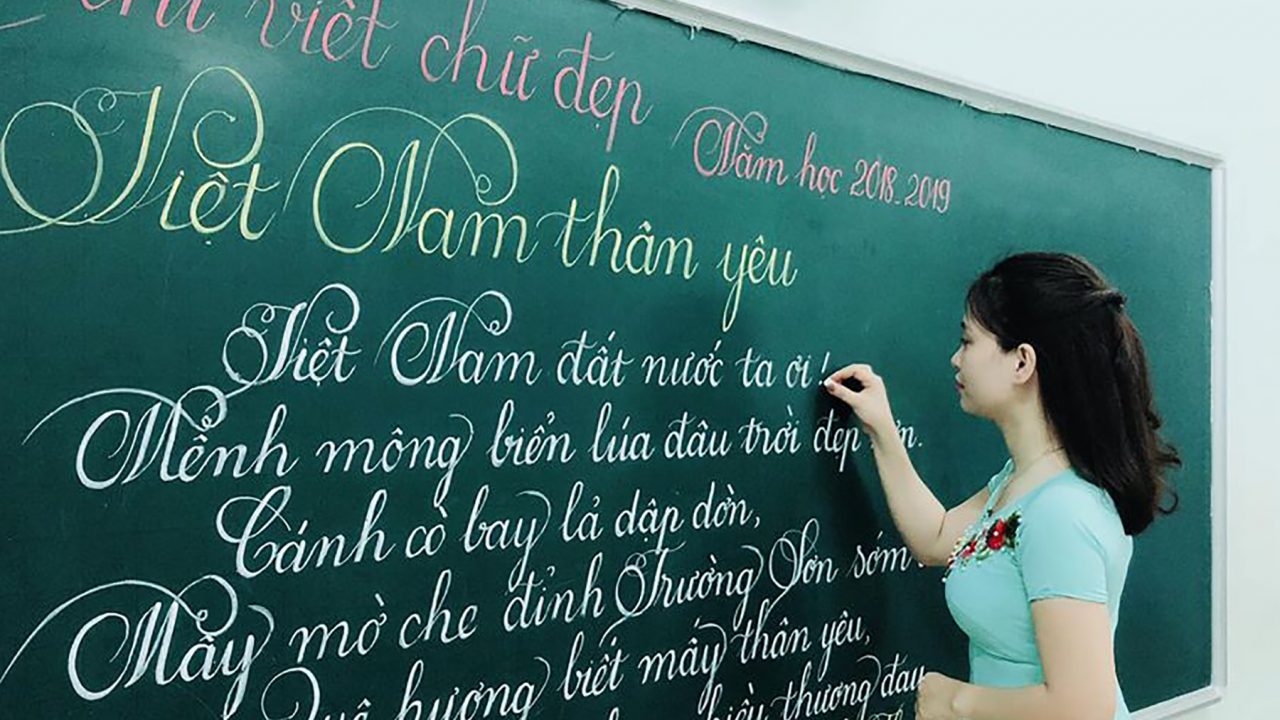 viết chữ đẹp
Năm học 2018-2019
Việt Nam thân yêu
Việt Nam đất nước ta ơi!
Mênh mông biển lúa đâu trời đẹp hơn.
Cánh cò bay lả dập dờn,
Mây mờ che đỉnh Trường Sơn sớm
Quê hương biết mấy thân yêu,
nhiêu thương đau